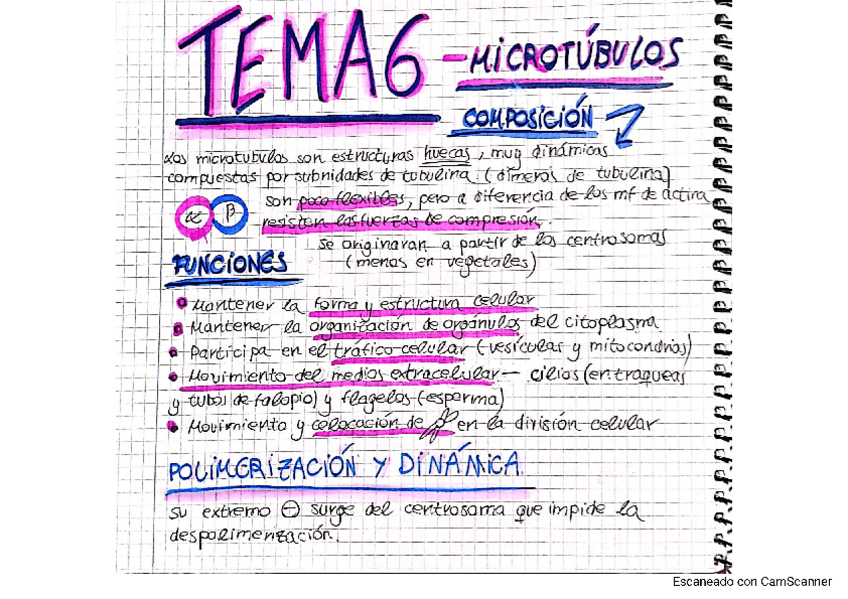 TEMA 6 - MICROTÚBULOS
COMPOSICIÓN
Los microtubulos son estructuras huecas, muy dinámicas
compuestas por subnidades de tubulina. (dímeros de tubulina)
α β
son poco flexibles, pero a diferencia de los mf de actina
resisten las fuerzas de compresión.
se originaran a partir de los centrosomas
(menos en vegetales)
FUNCIONES
• Mantener la forma y estructura celular
• Mantener la organización de orgánulos del citoplasma
• Participa en el tráfico celular (vesículas y mitocondrias)
• Movimiento del medios extracelular - cilios (en traqueas
y tubos de falopio) y flagelos (esperma)
• Movimiento y colocación de en la división celular
POLIMERIZACIÓN Y DINÁMICA
su extremo ⊖ surge del centrosoma que impide la
despolimenzación.
Escaneado con CamScanner